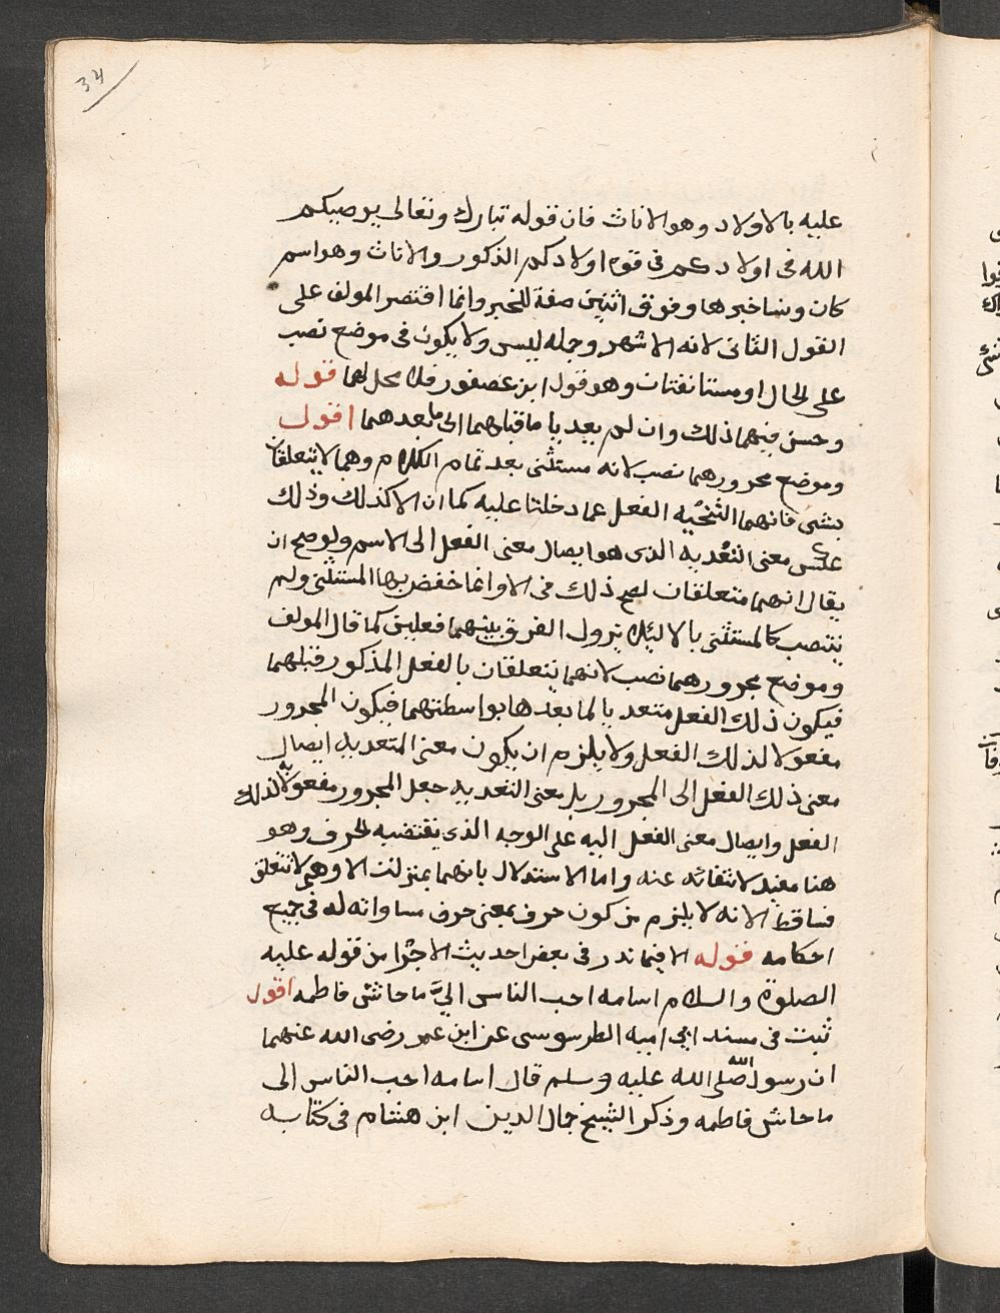 34
عليه بالاولاد وهو الاناث فان قوله تبارك وتعالى يوصيكم
الله فى اولادكم فى قوه اولادكم الذكور والاناث وهو اسم
كان ونسا خبرها وفوق اثنين صفة للخبر وانما اقتصر المولف على
القول الثانى لانه الاشهر وجمله ليس ولا يكون فى موضع نصب
على الحال او مستانفتان وهو قول ابن عصفور فلا محل لهما قوله
وحسن فيهما ذلك وان لم يعديا ما قبلهما الى ما بعدهما اقول
وموضع مجرورهما نصب لانه مستثنى بعد تمام الكلام وهما لا يتعلقان
بشى فانهما لتنحيه الفعل عما دخلتا عليه كما ان الا كذلك وذلك
عكس معنى التعديه الذى هو ايصال معنى الفعل الى الاسم ولو صح ان
يقال انهما متعلقان لصح ذلك فى الا وانما خفض بهما المستثنى ولم
ينتصب كالمستثنى بالا ليلا يزول الفرق بينهما فعلين كما قال المولف
وموضع مجرورهما نصب لانهما يتعلقان بالفعل المذكور قبلهما
فيكون ذلك الفعل متعديا لما بعدها بواسطتهما فيكون المجرور
مفعولا لذلك الفعل ولا يلزم ان يكون معنى المتعديه ايصال
معنى ذلك الفعل الى المجرور بل معنى التعديه جعل المجرور مفعولا به لذلك
الفعل وايصال معنى الفعل اليه على الوجه الذى يقتضيه الحرف وهو
هنا مفيد لانتفائه عنه واما الاستدلال بانهما بمنزلت الا وهى لا تتعلق
فساقط لانه لا يلزم من كون حرف بمعنى حرف مساواته له فى جميع
احكامه قوله الا فيما ندر فى بعض احديث الاجزا من قوله عليه
الصلوة والسلام اسامه احب الناس الىَّ ما حاشى فاطمه اقول
ثبت فى مسند ابى اميه الطرسوسى عن ابن عمر رضى الله عنهما
ان رسول الله صلى الله عليه وسلم قال اسامه احب الناس الى
ما حاش فاطمه وذكر الشيخ جمال الدين ابن هشام فى كتابه